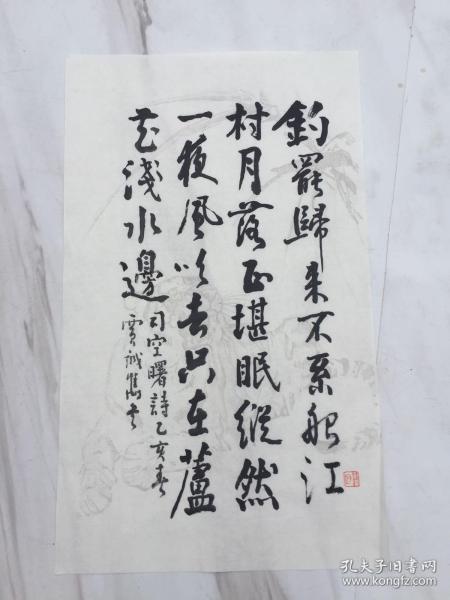 釣罷歸来不系船江
村月落正堪眠縱然
一夜風吹去只在蘆
花淺水邊
司空曙詩乙亥春
賈誠書
孔夫子旧书网
www.kongfz.com